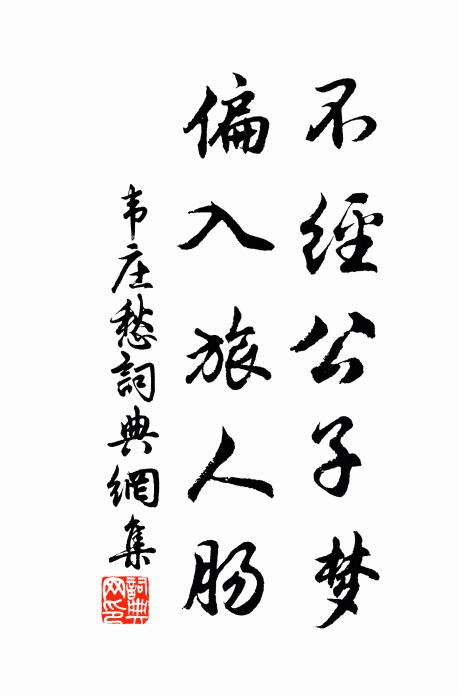 不經公子梦
偏入旅人肠
韦庄愁詞典網集
詞典
网印